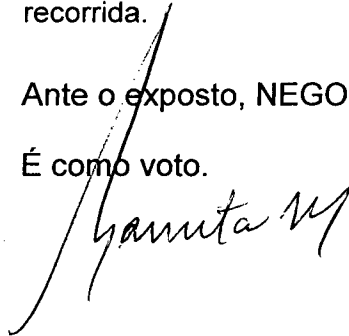 recorrida.
Ante o exposto, NEGO
É como voto.